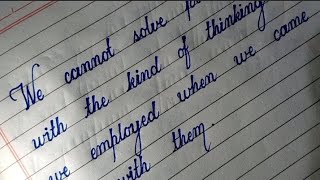 We cannot solve
with the kind of thinking
we employed when we came
with them.